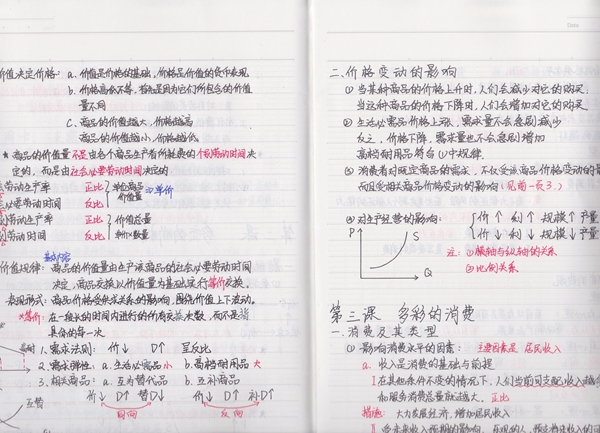 价值决定价格：a. 价值是价格的基础，价格是价值的货币表现
b. 价格高低不等，首先是因为它们所包含的价值
量不同
c. 商品的价值越大，价格越高
商品的价值越小，价格越低
* 商品的价值量不是由各个商品生产者所耗费的个别劳动时间决
定的，而是由社会必要劳动时间决定的
劳动生产率 正比 单位商品
必要劳动时间 反比 价值量 单价
劳动生产率 正比 价值总量
劳动时间 反比
基本内容
价值规律：商品的价值量由生产该商品的社会必要劳动时间
决定，商品交换以价值量为基础实行等价交换
表现形式：商品价格受供求关系的影响，围绕价值上下波动。
*等价：在一段长的时间内进行的所有交换次数，而不是
具体的每一次
1. 需求法则：价↓ D↑ 呈反比
2. 需求弹性：a. 生活必需品 小 b. 高档耐用品 大
3. 相关商品：a. 互为替代品 b. 互补商品
互替 价↓ D↑ 替D↓ 价↓ D↑ 补D↑
同向 反向
Date
二. 价格变动的影响
① 当某种商品的价格上升时，人们会减少对它的购买；
当这种商品的价格下降时，人们会增加对它的购买
② 生活必需品价格上涨，需求量不会急剧减少
反之，价格下降，需求量也不会急剧增加
高档耐用品符合①中规律
③ 消费者对既定商品的需求，不仅受该商品价格变动的影
而且受相关商品价格变动的影响（见前一页3.）
④ 对生产经营的影响： 价↑ 利↑ 规模↑ 产量
价↓ 利↓ 规模↓ 产量
P S
Q
注：①横轴与纵轴的关系
②比例关系
第三课 多彩的消费
一. 消费及其类型
① 影响消费水平的因素： 主要因素是 居民收入
a. 收入是消费的基础与前提
I 在其他条件不变的情况下，人们当前可支配收入越
和服务消费总量就越大。 正比
措施：大力发展经济，增加居民收入
II